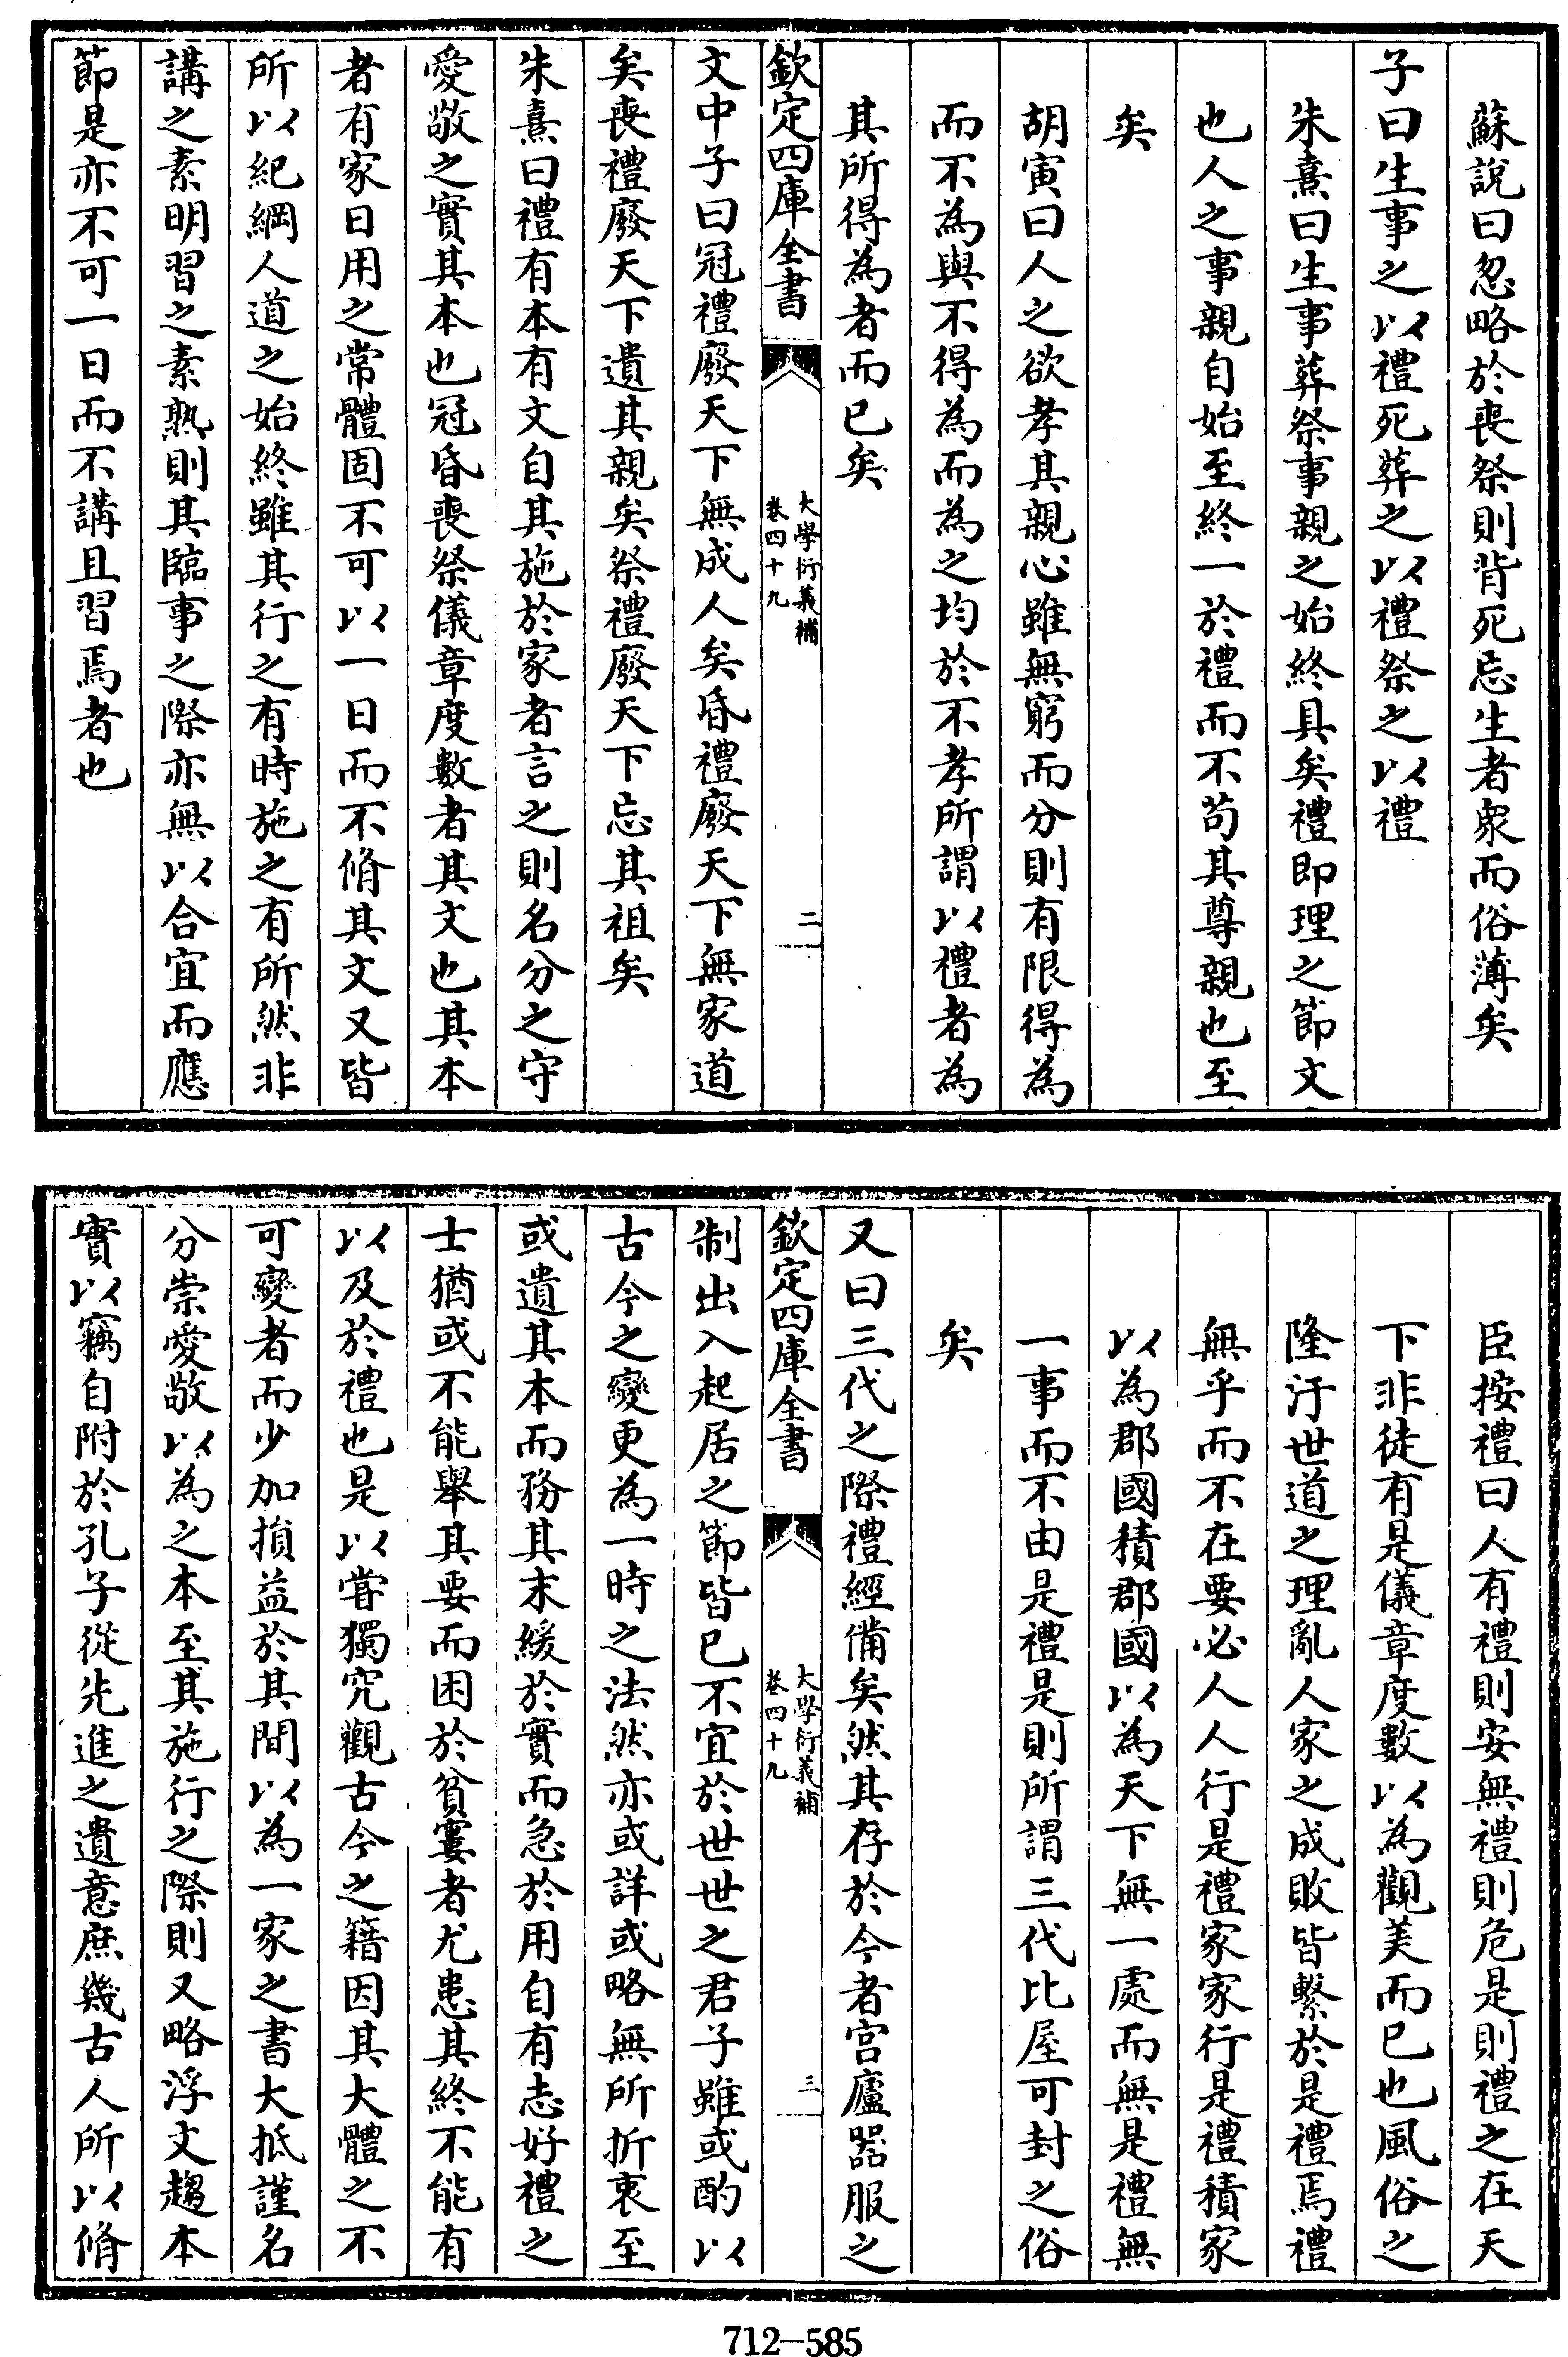 蘇說曰忽略於喪祭則背死忘生者衆而俗薄矣
子曰生事之以禮死葬之以禮祭之以禮
朱熹曰生事葬祭事親之始終具矣禮即理之節文
也人之事親自始至終一於禮而不苟其尊親也至
矣
胡寅曰人之欲孝其親心雖無窮而分則有限得為
而不為與不得為而為之均於不孝所謂以禮者為
其所得為者而已矣
欽定四庫全書
大學衍義補
卷四十九
二
文中子曰冠禮廢天下無成人矣昏禮廢天下無家道
矣喪禮廢天下遺其親矣祭禮廢天下忘其祖矣
朱熹曰禮有本有文自其施於家者言之則名分之守
愛敬之實其本也冠昏喪祭儀章度數者其文也其本
者有家日用之常體固不可以一日而不脩其文又皆
所以紀綱人道之始終雖其行之有時施之有所然非
講之素明習之素熟則其臨事之際亦無以合宜而應
節是亦不可一日而不講且習焉者也
臣按禮曰人有禮則安無禮則危是則禮之在天
下非徒有是儀章度數以為觀美而已也風俗之
隆汙世道之理亂人家之成敗皆繫於是禮焉禮
無乎而不在要必人人行是禮家家行是禮積家
以為郡國積郡國以為天下無一處而無是禮無
一事而不由是禮是則所謂三代比屋可封之俗
矣
又曰三代之際禮經備矣然其存於今者宮廬器服之
欽定四庫全書
大學衍義補
卷四十九
三
制出入起居之節皆已不宜於世世之君子雖或酌以
古今之變更為一時之法然亦或詳或略無所折衷至
或遺其本而務其末緩於實而急於用自有志好禮之
士猶或不能舉其要而困於貧窶者尤患其終不能有
以及於禮也是以嘗獨究觀古今之籍因其大體之不
可變者而少加損益於其間以為一家之書大抵謹名
分崇愛敬以為之本至其施行之際則又略浮文趨本
實以竊自附於孔子從先進之遺意庶幾古人所以脩
712-585